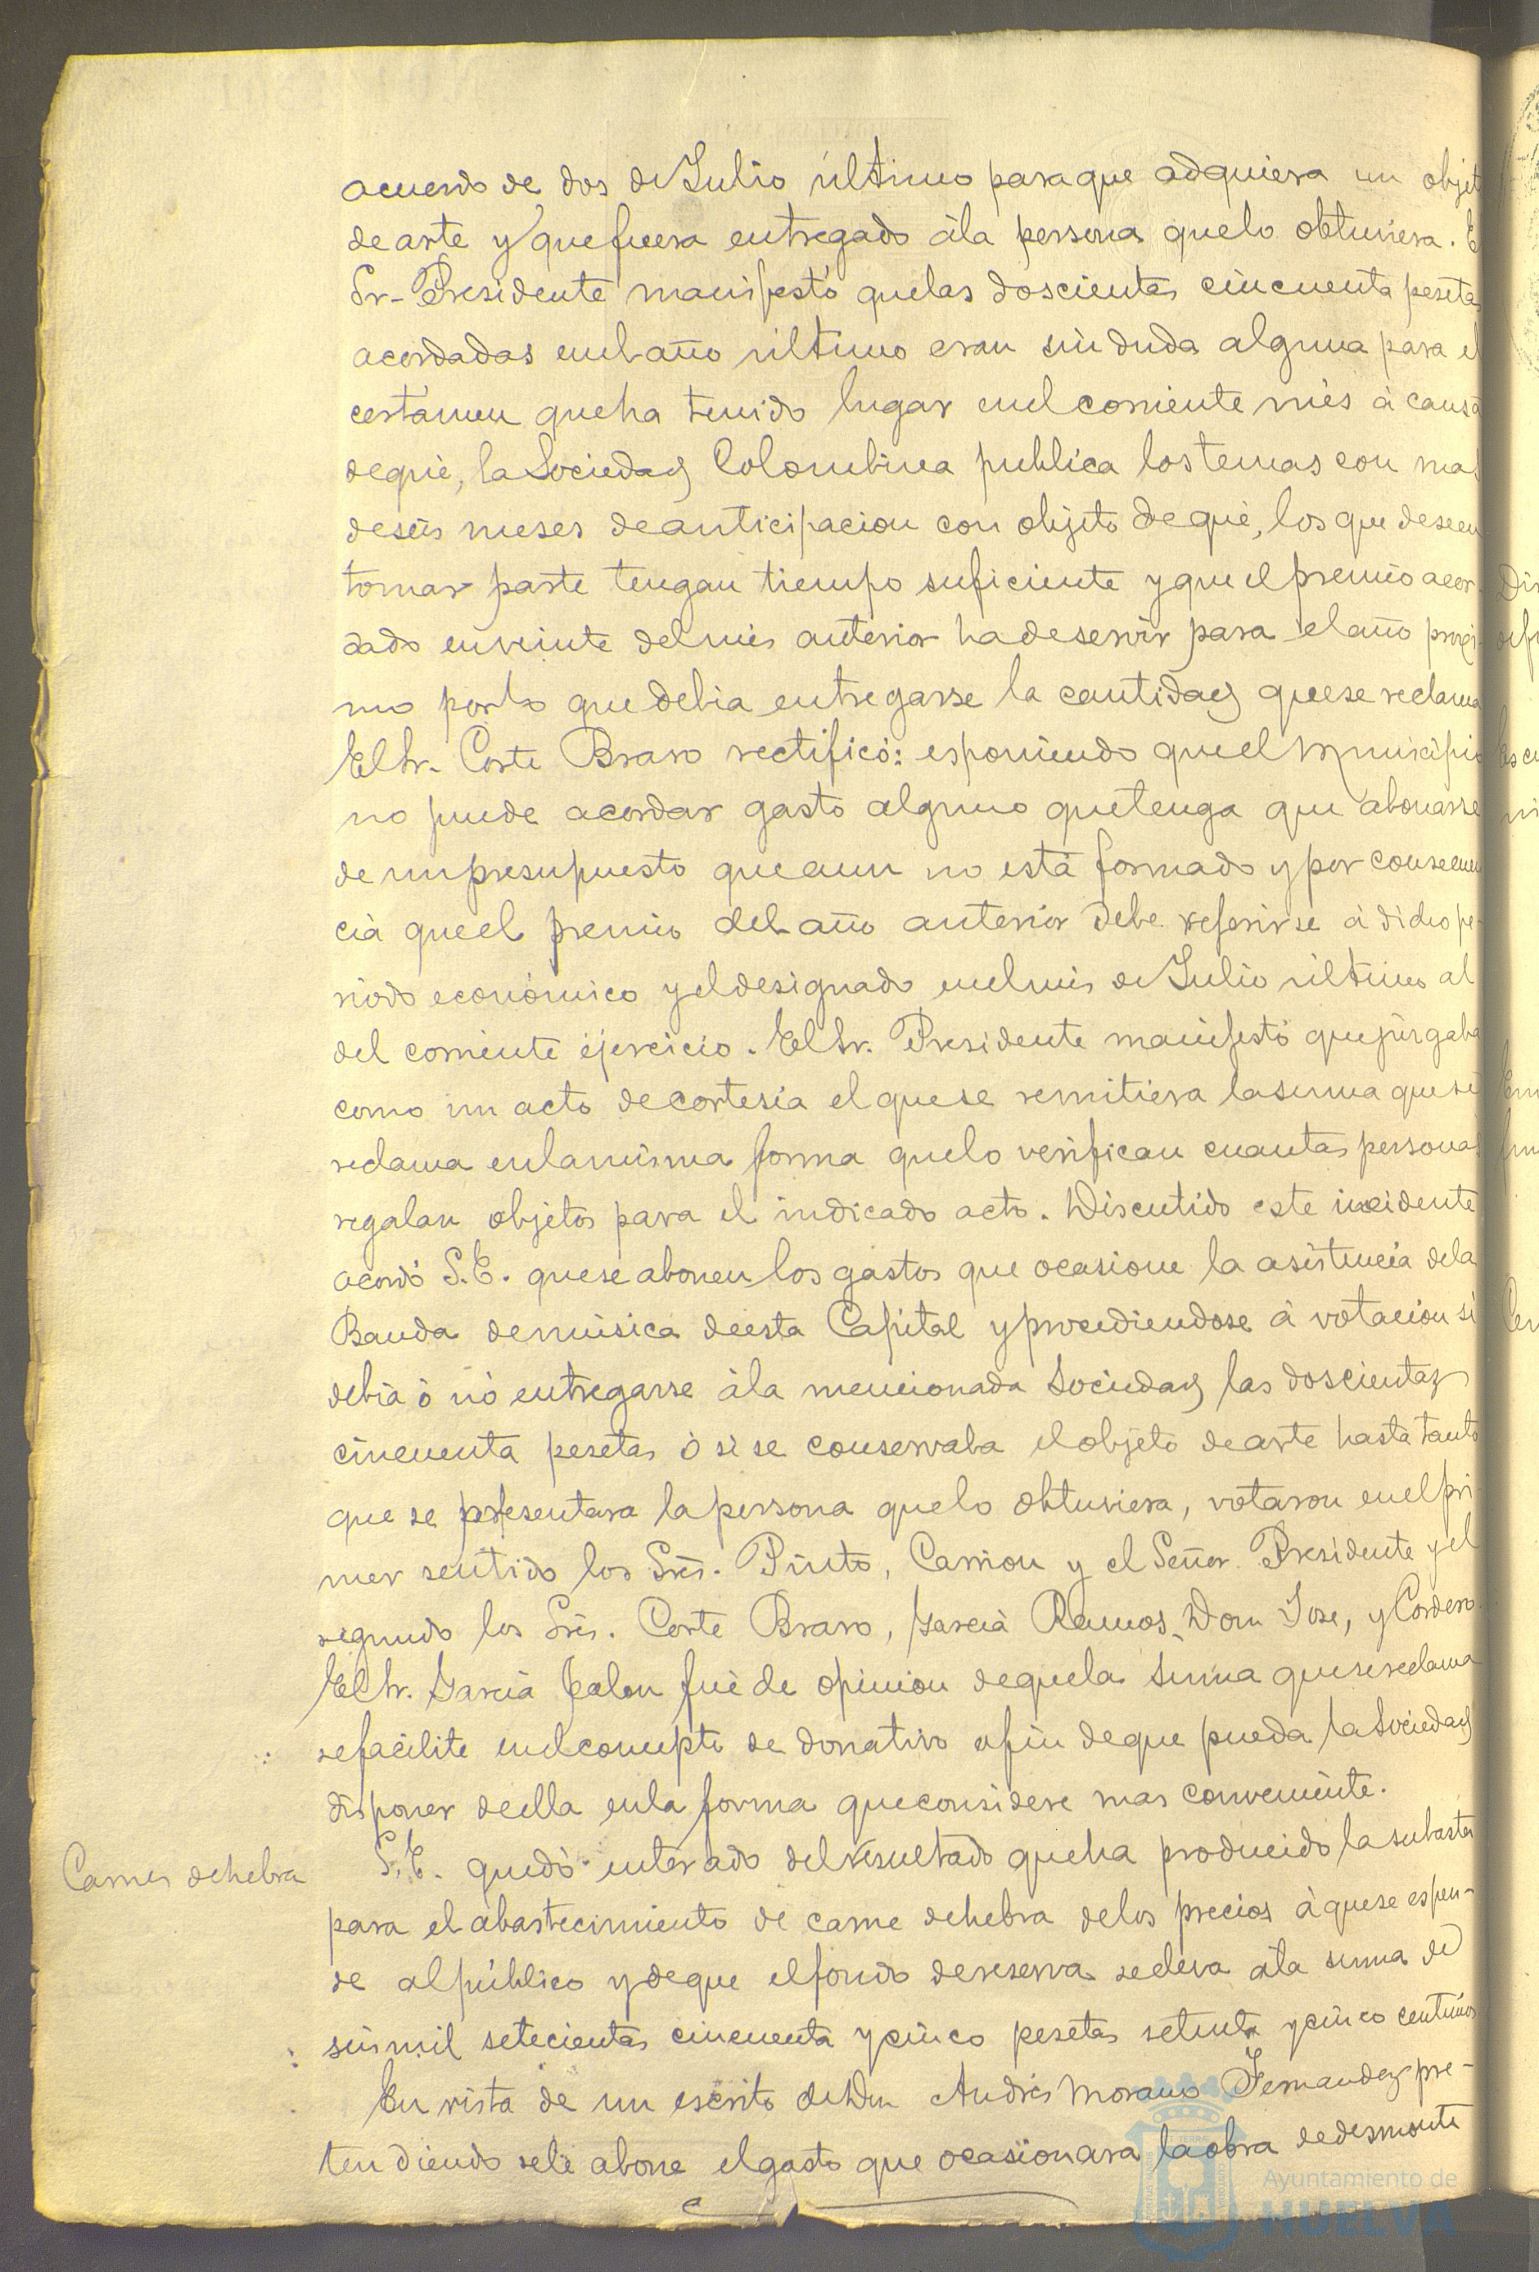 acuerdo de dos de Julio último para que adquiera un objet
de arte y que fuera entregado á la persona que lo obtuviera. E
Sr. Presidente manifestó que las doscientas cincuenta peseta
acordadas en el año último eran sin duda alguna para el
certámen que ha tenido lugar en el corriente més á causa
de qué, la Sociedad Colombina publica los temas con mas
de seis meses de anticipacion con objeto de qué, los que deseen
tomar parte tengan tiempo suficiente y que el premio acor
dado en veinte del més anterior ha de servir para el año proxi
mo por lo que debia entregarse la cantidad que se reclama
El Sr. Corte Bravo rectificó: esponiendo que el Municipio
no puede acordar gasto alguno que tenga que abonarse
de un presupuesto que aun no está formado y por consecuen
cia que el premio del año anterior debe referirse á dicho pe-
riodo económico y el designado en el més de Julio último al
del corriente ejercicio. El Sr. Presidente manifestó que juzgaba
como un acto de cortesia el que se remitiera la suma que se
reclama en la misma forma que lo verifican cuantas personas
regalan objetos para el indicado acto. Discutido este incidente
acordó S.E. que se abonen los gastos que ocasione la asistencia de la
Banda de música de esta Capital y procediendose á votacion si
debia ó nó entregarse á la mencionada Sociedad las doscientas
cincuenta pesetas ó si se conservaba el objeto de arte hasta tanto
que se presentara la persona que lo obtuviera, votaron en el pri
mer sentido los Sres. Pinto, Carrion y el Señor Presidente y el
segundo los Sres. Corte Bravo, Garcia Ramos, Don Jose, y Cordero.
El Sr. Garcia Jalon fué de opinion de que la suma que se reclama
se facilite en el concepto de donativo a fin de que pueda la Sociedad
disponer de ella en la forma que considere mas conveniente.
Carnes de hebra
S.E. quedó enterado del resultado que ha producido la subasta
para el abastecimiento de carne de hebra de los precios á que se espen-
de al público y de que el fondo de reserva se eleva á la suma de
seis mil setecientas cincuenta y cinco pesetas setenta y cinco centimos
En vista de un escrito de Don Andrés Morano Fernandez pre-
tendiendo se le abone el gasto que ocasionara la obra de desmonte
Ayuntamiento de
HUELVA